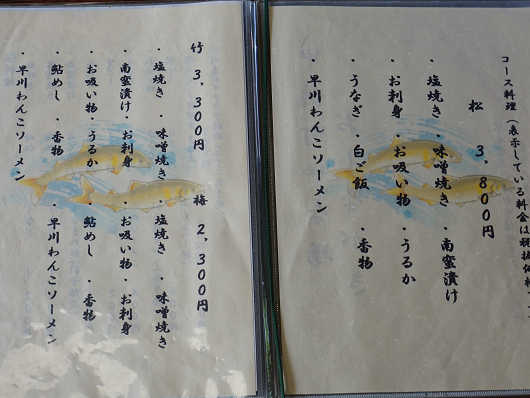 コース料理(表示している料金は税抜価
松 3,800円
・塩焼き・味噌焼き・南蛮漬け
・お刺身・お吸い物・うるか
・うなぎ・白ご飯・香物
・早川わんこソーメン
竹 3,300円
・塩焼き・味噌焼き
・南蛮漬け・お刺身
・お吸い物・うるか
・鮎めし・香物
・早川わんこソーメン
梅 2,300円
・塩焼き・味噌焼き
・お吸い物・お刺身
・鮎めし・香物
・早川わんこソーメン